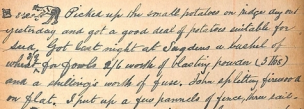 Picked up the small potatoes on ridge dug out
yesterday and got a good deal of potatoes suitable for
seed, Got last night at Jugdens a bushel of
wheat for fowls 2/6 worth of blasting powder (3 lbs)
and a shilling's worth of fuse. John splitting firewood
on flat. I put up a few pannels of fence, this eve.